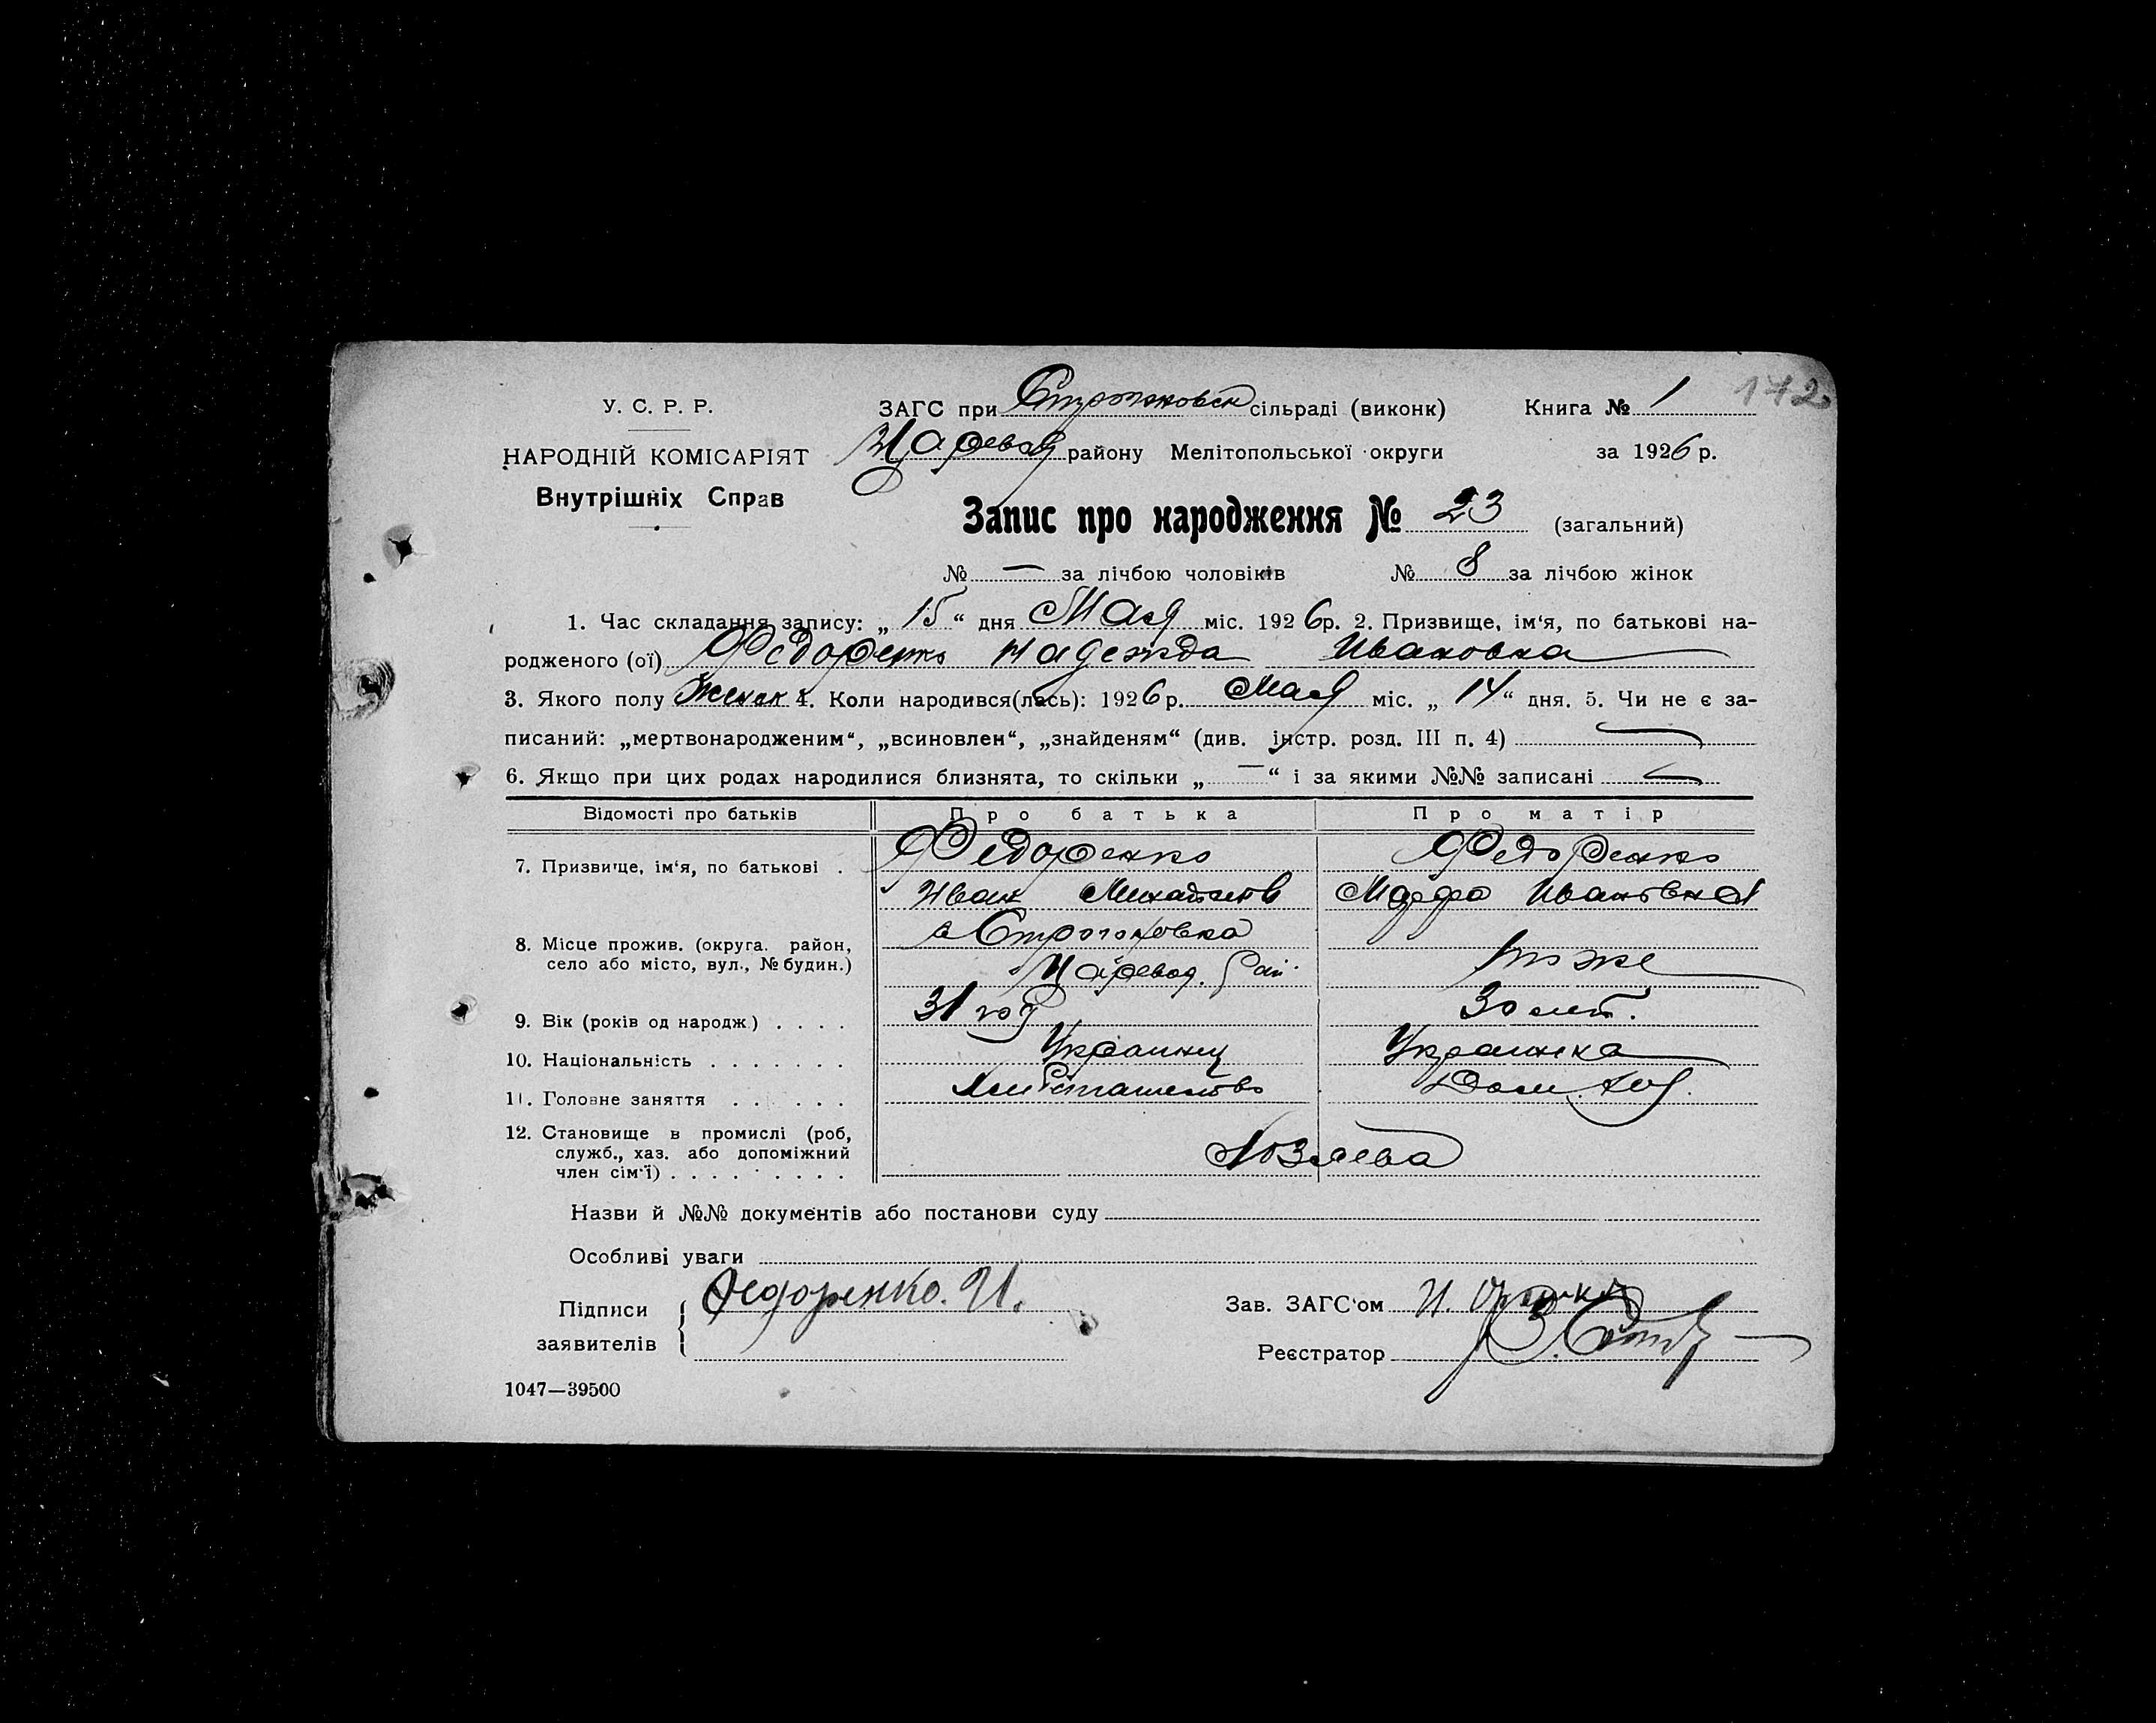 172
У. С. Р. Р.
ЗАГС при сільраді (виконк) Книга № 1
НАРОДНІЙ КОМІСАРІЯТ району Мелітопольської округи за 1926 р.
Внутрішніх Справ
Запис про народження № 23 (загальний)
№ — за лічбою чоловіків № 8 за лічбою жінок
1. Час складання запису: „ 15 “ дня Мая міс. 1926 р. 2. Призвище, ім‘я, по батькові на-
родженого (ої) Федоренко Надежда Ивановна
3. Якого полу Женск 4. Коли народився(лась): 1926 р. Мая міс. „ 14 “ дня. 5. Чи не є за-
писаний: „мертвонародженим“, „всиновлен“, „знайденям“ (див. інстр. розд. III п. 4) —
6. Якщо при цих родах народилися близнята, то скільки „ — “ і за якими №№ записані —
Відомості про батьків Про батька Про матір
7. Призвище, ім‘я, по батькові . Федоренко Федоренко
Иван Ивановна
8. Місце прожив. (округа. район, село або місто, вул., № будин.) с Строгоновка
Царевод. Рай. тоже
9. Вік (років од народж.) . . . . 31 год 30 лет.
10. Національність . . . . . . . Украинец Украинка
11. Головне заняття . . . . . . Хлебопашество Дом. хоз.
12. Становище в промислі (роб, служб., хаз. або допоміжний член сім‘ї) . . . . . . . . Хозяева
Назви й №№ документів або постанови суду
Особливі уваги
Підписи заявителів { Федоренко. И.
Зав. ЗАГС‘ом И.
Реєстратор
1047—39500